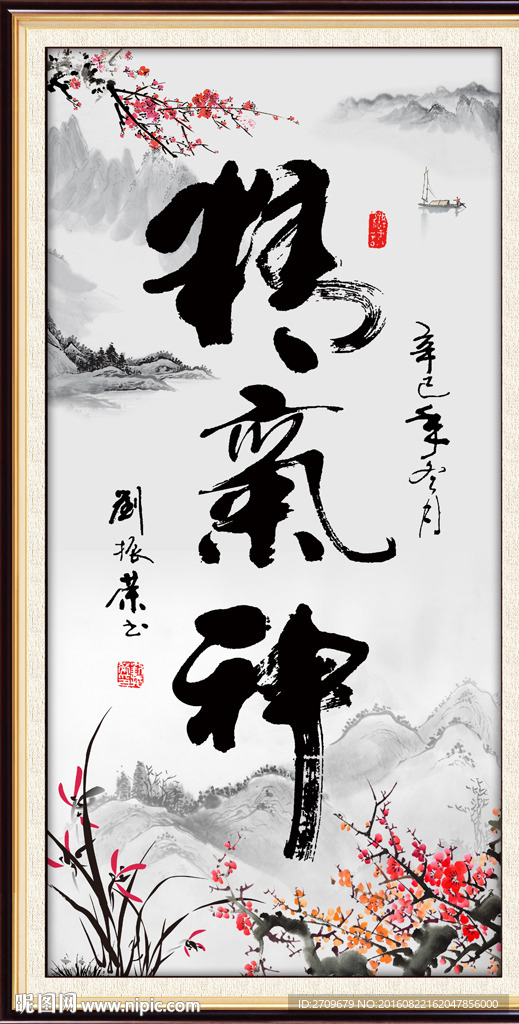 精氣神
辛巳年冬月
劉振榮书
昵图网 www.nipic.com
ID:2709679 NO:20160822162047856000